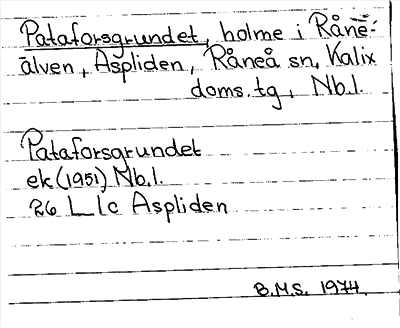 Pataforsgrundet, holme i Råne-
älven, Aspliden, Råneå sn, Kalix
doms.tg, Nb.l.
Pataforsgrundet
ek (1951) Nb.l.
26 L lc Aspliden
B.M.S. 1974.